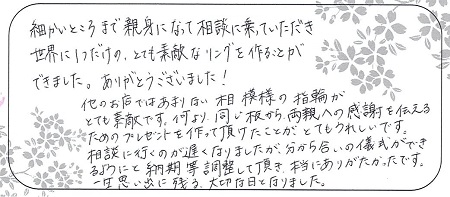 細かいところまで親身になって相談に乗っていただき
世界に1つだけの、とても素敵なリングを作ることが
できました。ありがとうございました！
他のお店ではあまりない相模様の指輪が
とても素敵です。何より、同じ板から、両親への感謝を伝える
ためのプレゼントを作って頂けたことがとてもうれしいです。
相談に行くのが遅くなりましたが、分かち合いの儀式ができ
るようにと納期等調整して頂き、本当にありがたかったです。
一生思い出に残る、大切な日となりました。